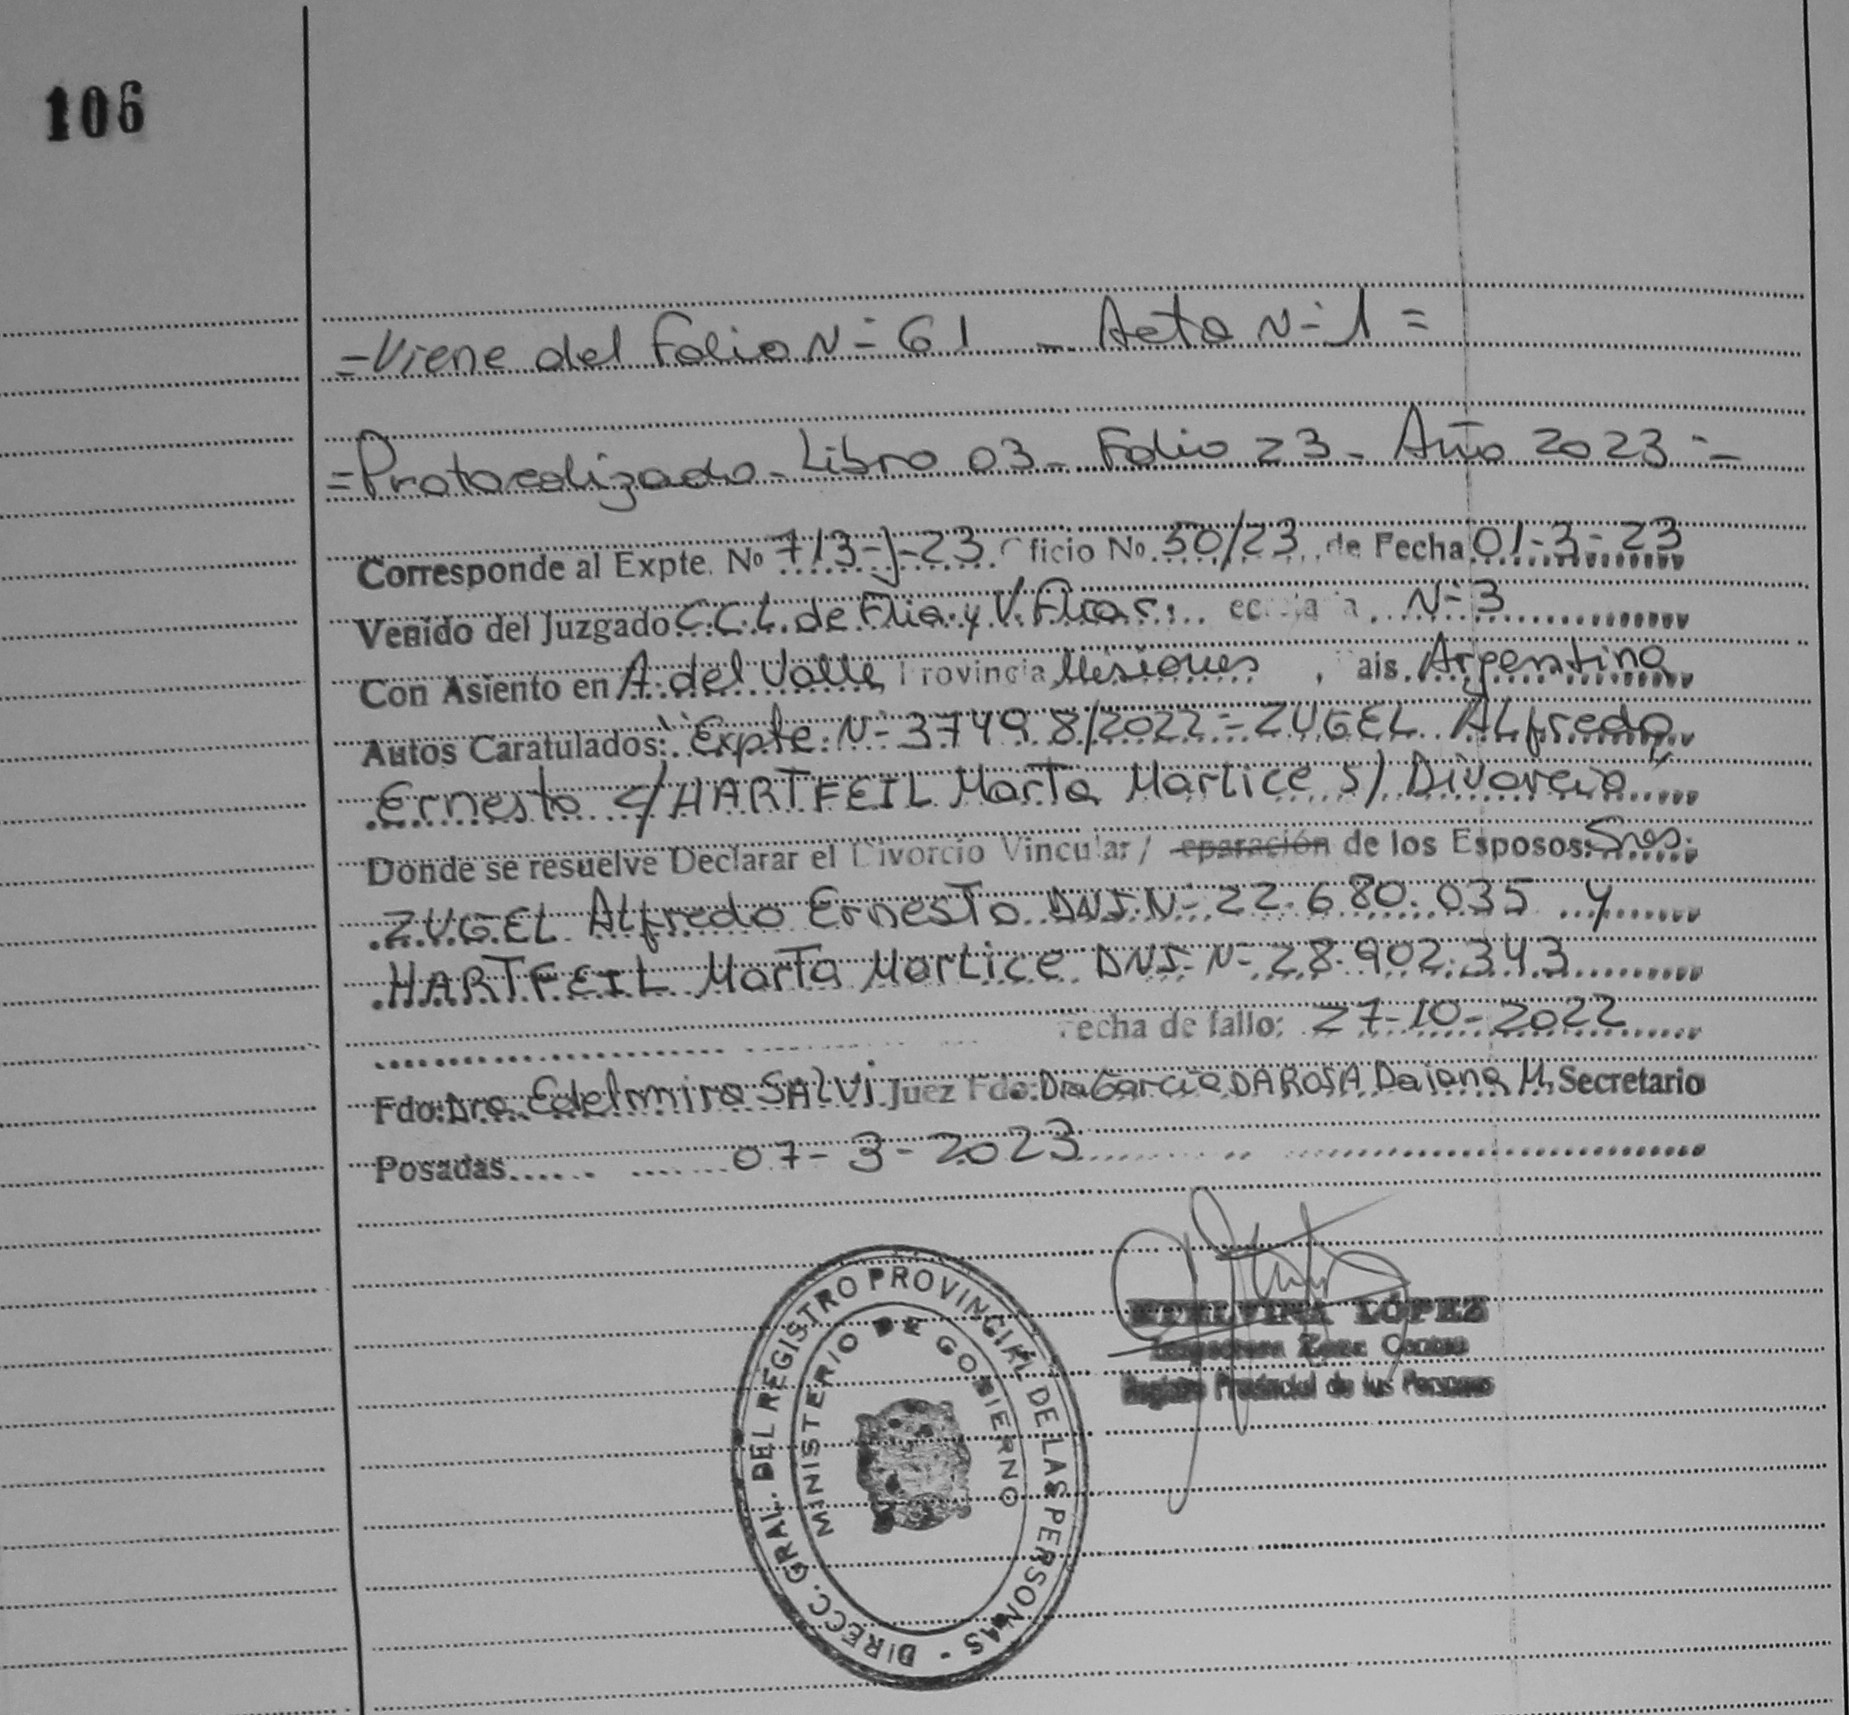 106
=Viene del Folio N= 61 - Acta N= 1 =
=Protocolizado - Libro 03 - Folio 23 - Año 2023 =
Corresponde al Expte. No 713-J-23 ficio No 50/23 de Fecha 01-3-23
Venido del Juzgado C.C.L. de Flia. y V. Fliar. N=3
Con Asiento en A. del Valle Provincia Misiones, ais. Argentina
Autos Caratulados: "Expte. N= 37498/2022 = ZUGEL Alfredo
Ernesto c/ HARTFEIL Marta Marlice s/ Divorcio"
Donde se resuelve Declarar el Divorcio Vincular/ eparación de los Esposos: Sres.
ZUGEL Alfredo Ernesto DNI N= 22.680.035 y
HARTFEIL Marta Marlice DNI N= 28.902.343
Fecha de fallo: 27-10-2022
Fdo: Dra. Edelmira SALVI Juez Fdo: Dra Garcia DA ROSA Daiana M, Secretario
Posadas 07-3-2023
ETELVINA LÓPEZ
Inspectora Zona Centro
Registro Provincial de las Personas
DIRECC. GRAL. DEL REGISTRO PROVINCIAL DE LAS PERSONAS -
MINISTERIO DE GOBIERNO